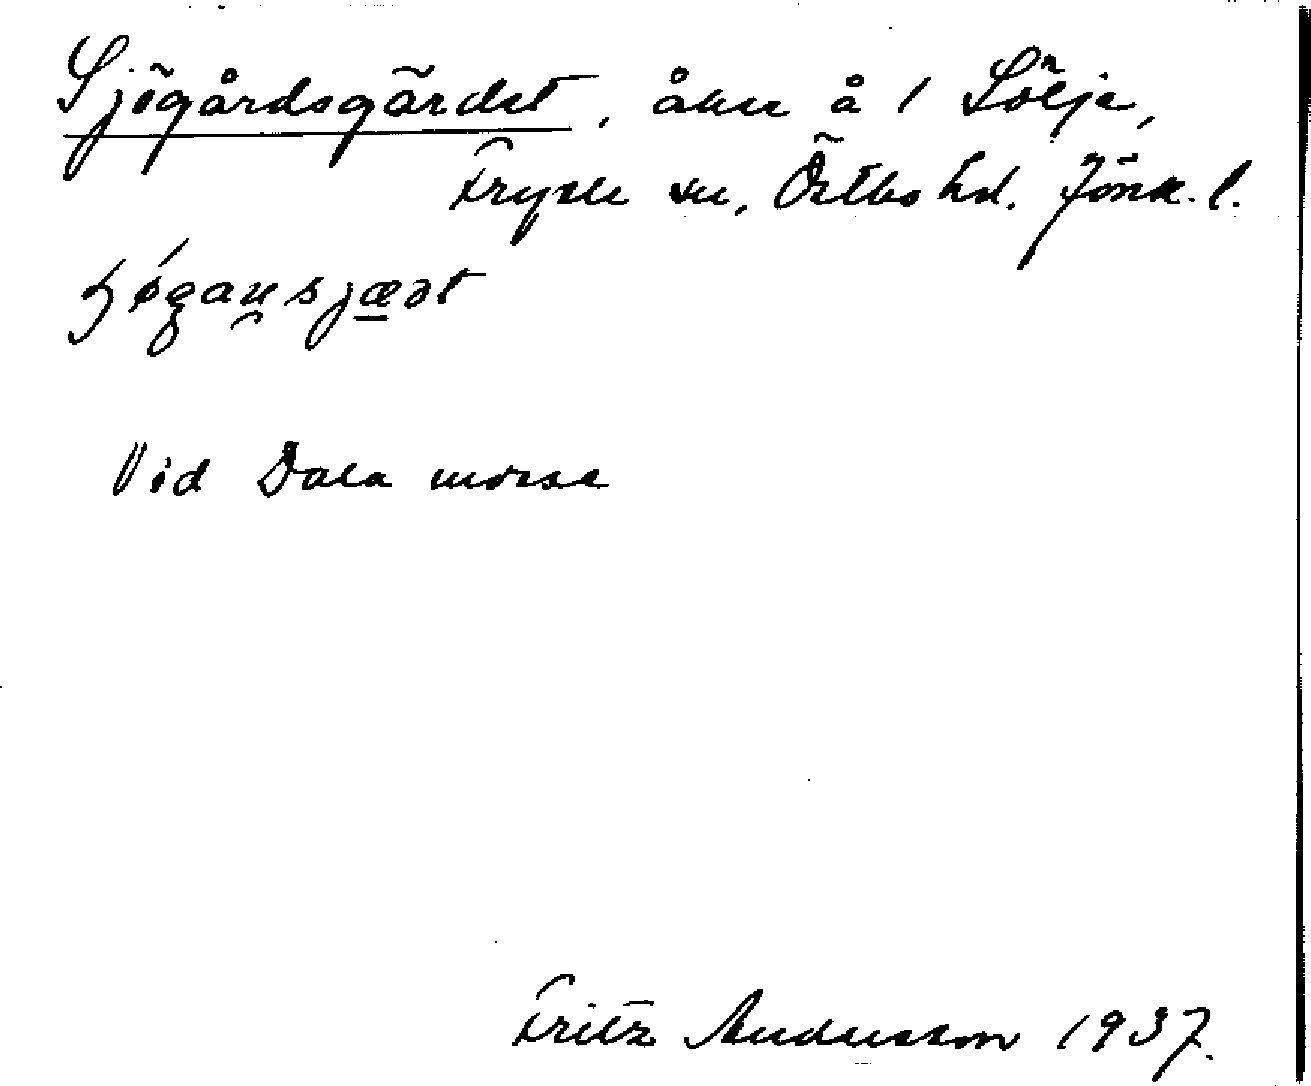 Sjögårdsgärdet, åker å 1 Sölje,
Fryele sn, Östbo hd. Jönk. l.
Vid Dala mosse
Fritz Andersson 1937.